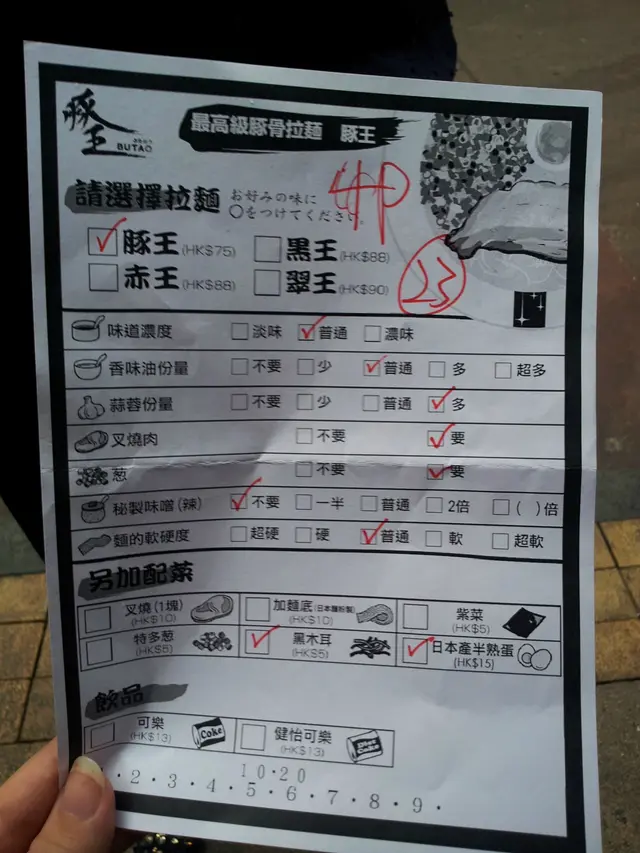 豚王
BUTAO
最高級豚骨拉麵 豚王
請選擇拉麵 お好みの味に
○をつけてください。
豚王(HK$75) 黒王(HK$88)
赤王(HK$88) 翠王(HK$90)
23
味道濃度 淡味 普通 濃味
香味油份量 不要 少 普通 多 超多
蒜蓉份量 不要 少 普通 多
叉燒肉 不要 要
葱 不要 要
秘製味噌(辣) 不要 一半 普通 2倍 ( )倍
麵的軟硬度 超硬 硬 普通 軟 超軟
另加配菜
叉燒(1塊) (HK$10) 加麵底(日本麵粉製) (HK$10) 紫菜 (HK$5)
特多葱 (HK$5) 黑木耳 (HK$5) 日本產半熟蛋 (HK$15)
飲品
可樂 (HK$13) Coke 健怡可樂 (HK$13) Diet Coke
10·20
·2·3·4·5·6·7·8·9·